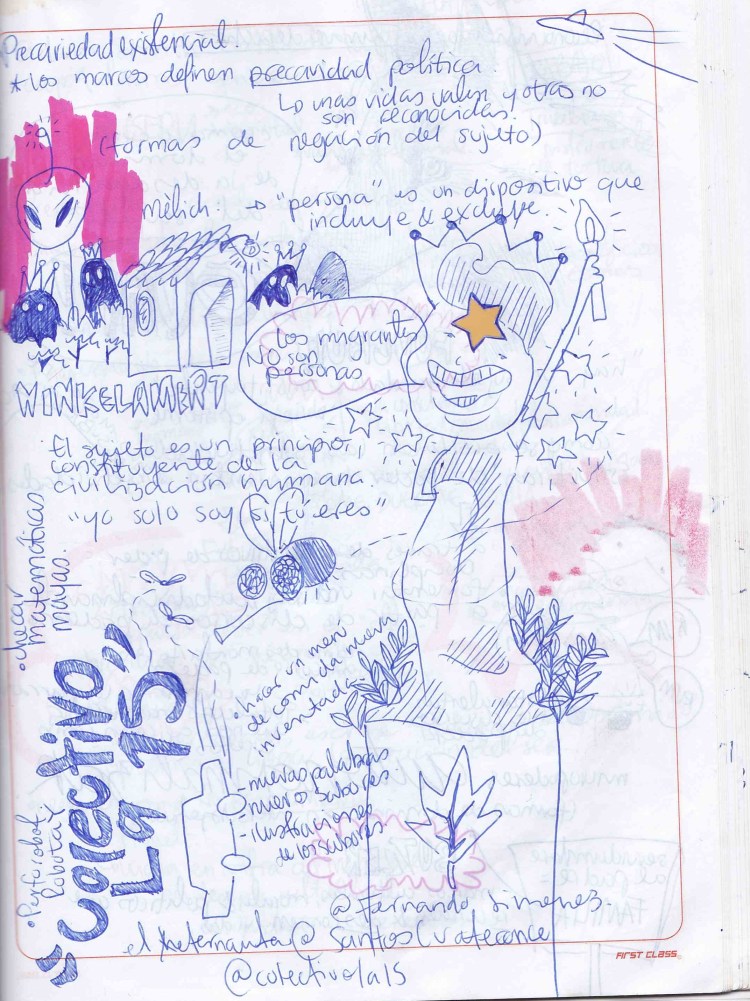 Precariedad existencial.
* los marcos definen precaridad política.
↳ unas vidas valen y otras no
son reconocidas.
(formas de negación del sujeto)
mèlich. → "persona" es un dispositivo que
incluye & excluye.
los migrantes
NO son
personas
WINKELAMERT
El sujeto es un principio
constituyente de la
civilización humana
"yo solo soy si tu eres"
• checar
matemáticas
mayas.
"Colectivo
La 15"
• hacer un menú
de comida nueva
inventada.
- nuevas palabras
- nuevos sabores
- ilustraciones
de los sabores.
@Fernando_Jimenez.
el @ Santos
@colectivola15
FIRST CLASS